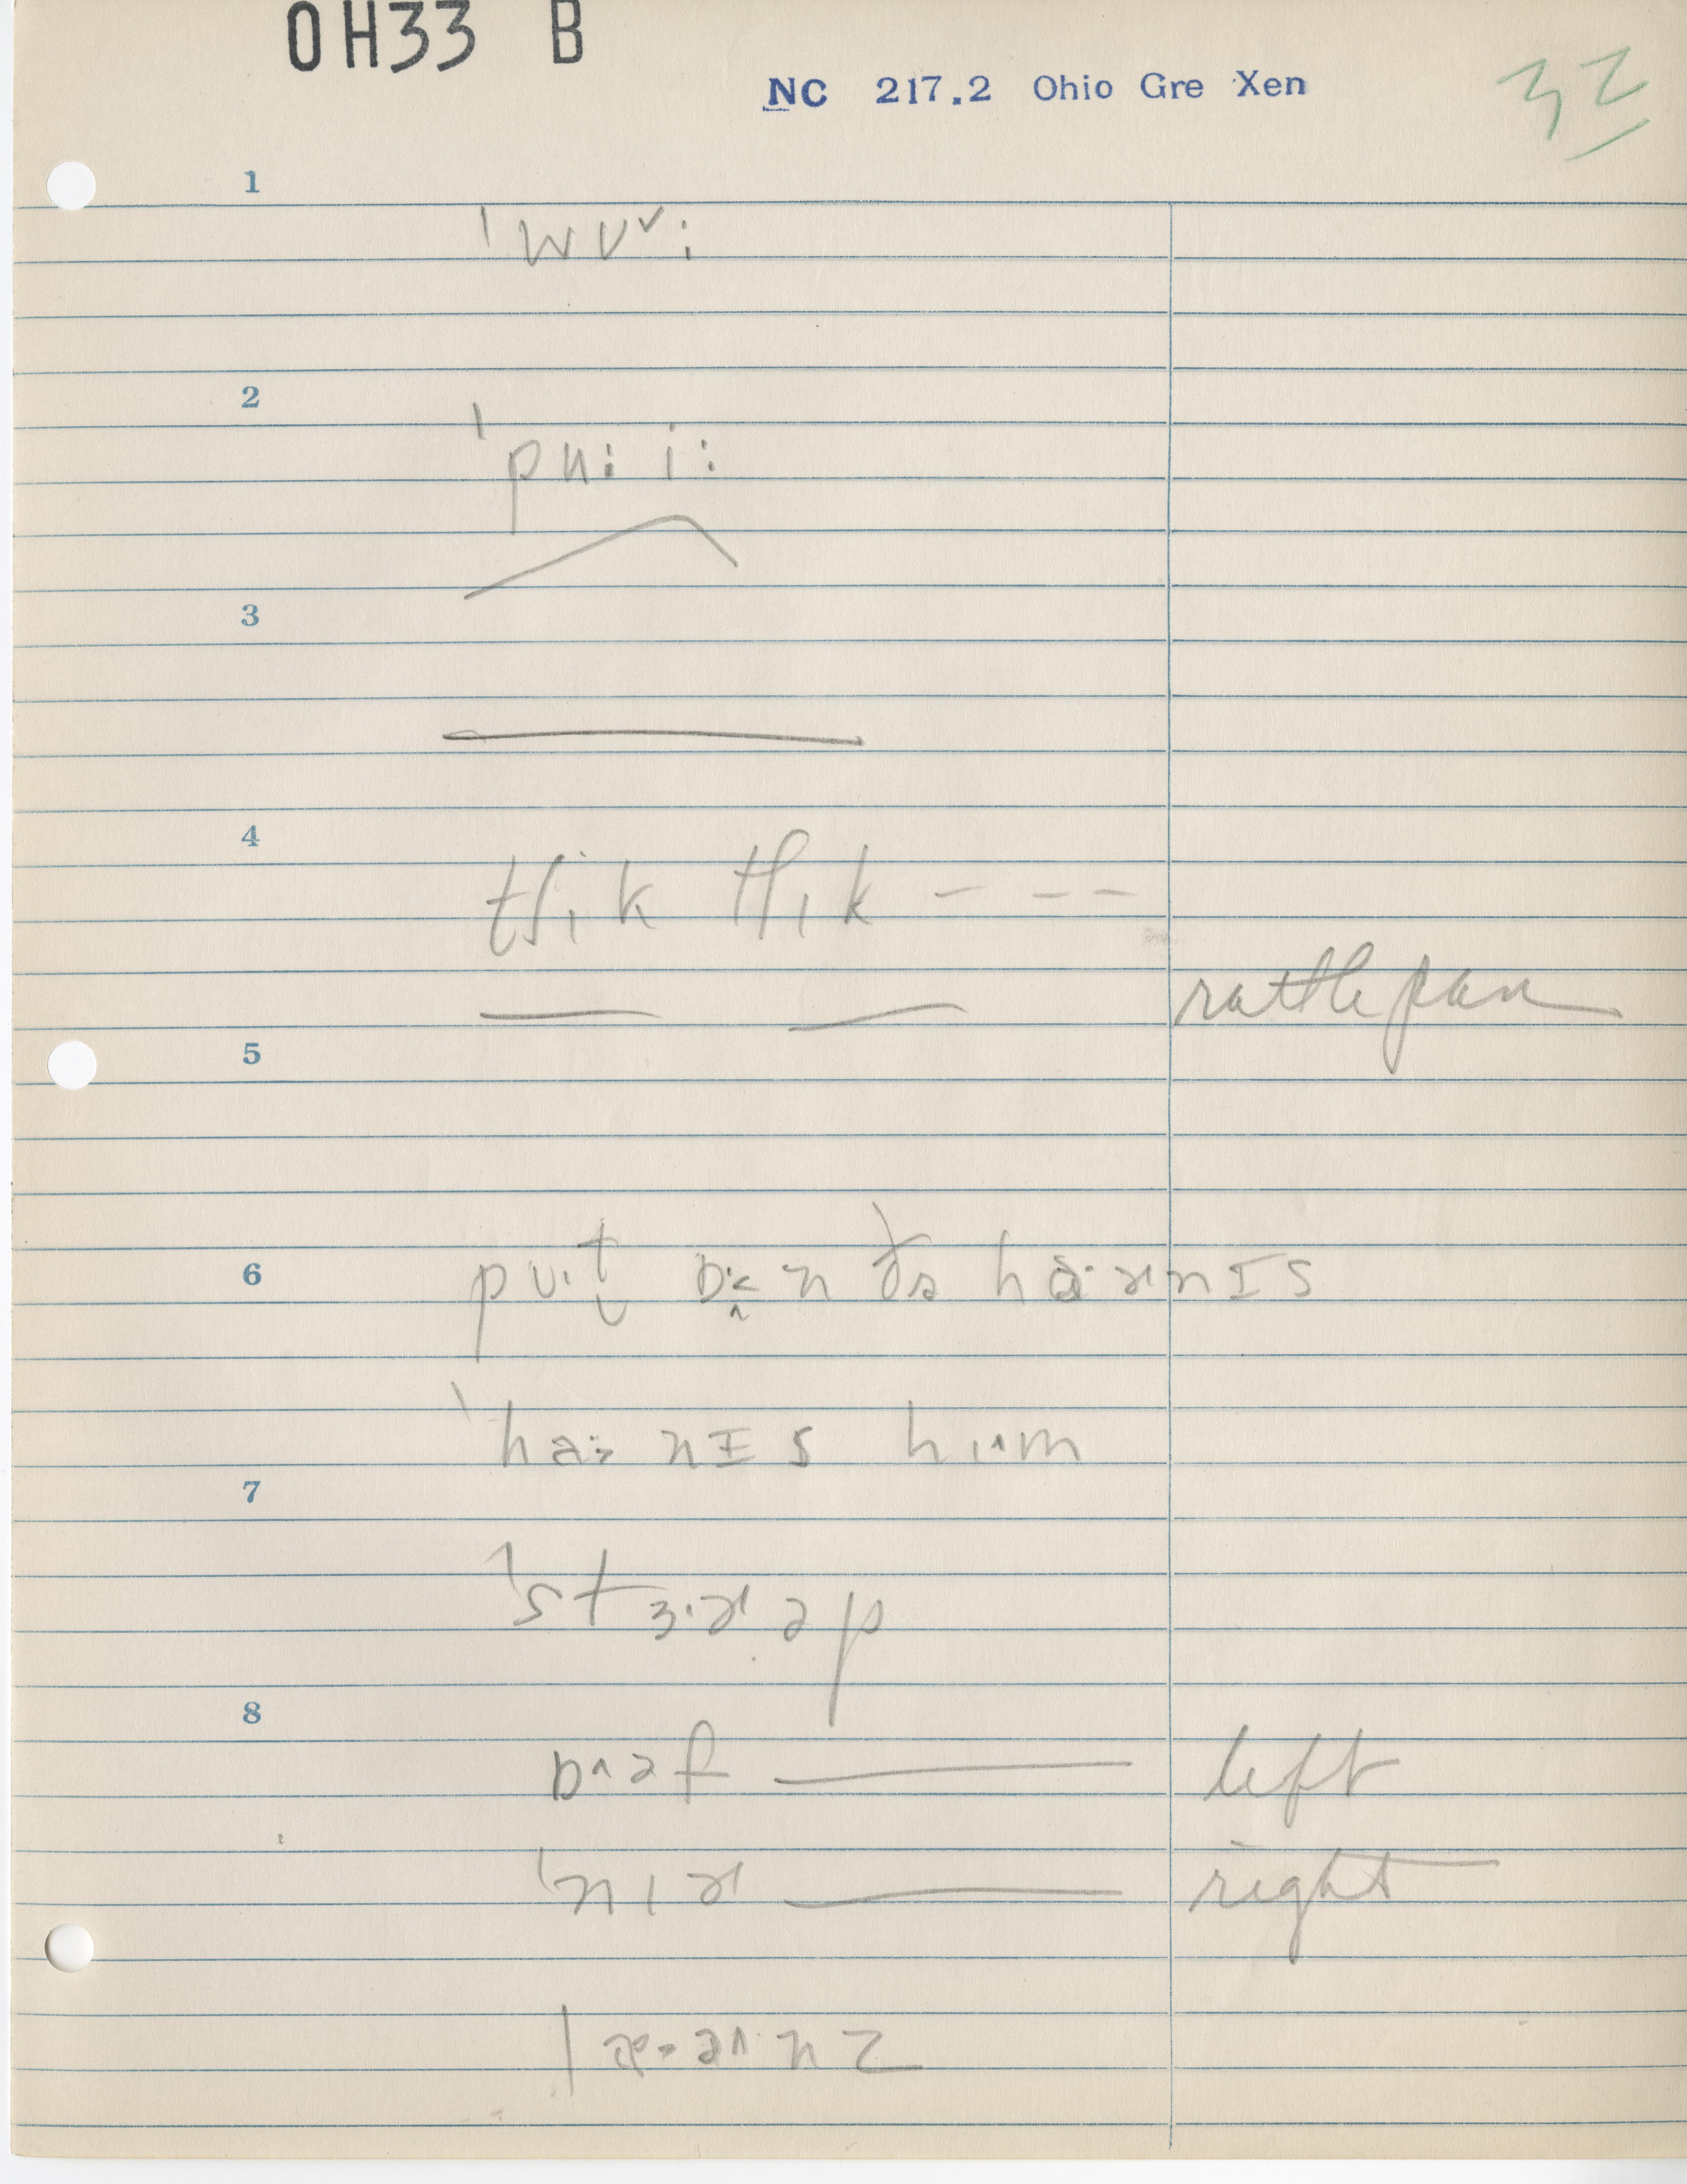 OH33 B
NC 217.2 Ohio Gre Xen
32
1
ˈwʊˇi
2
ˈpuːiː
3
4
tʃɪk tʃɪk – – –
rattle pan
5
6
pʊ·t ɒn ðə hɑ·ɚnɪs
ˈhɑːɚnɪs hɪ^m
7
ˈstɜ·ɹəp
8
ɒ^əf left
ˈnɪɹ right